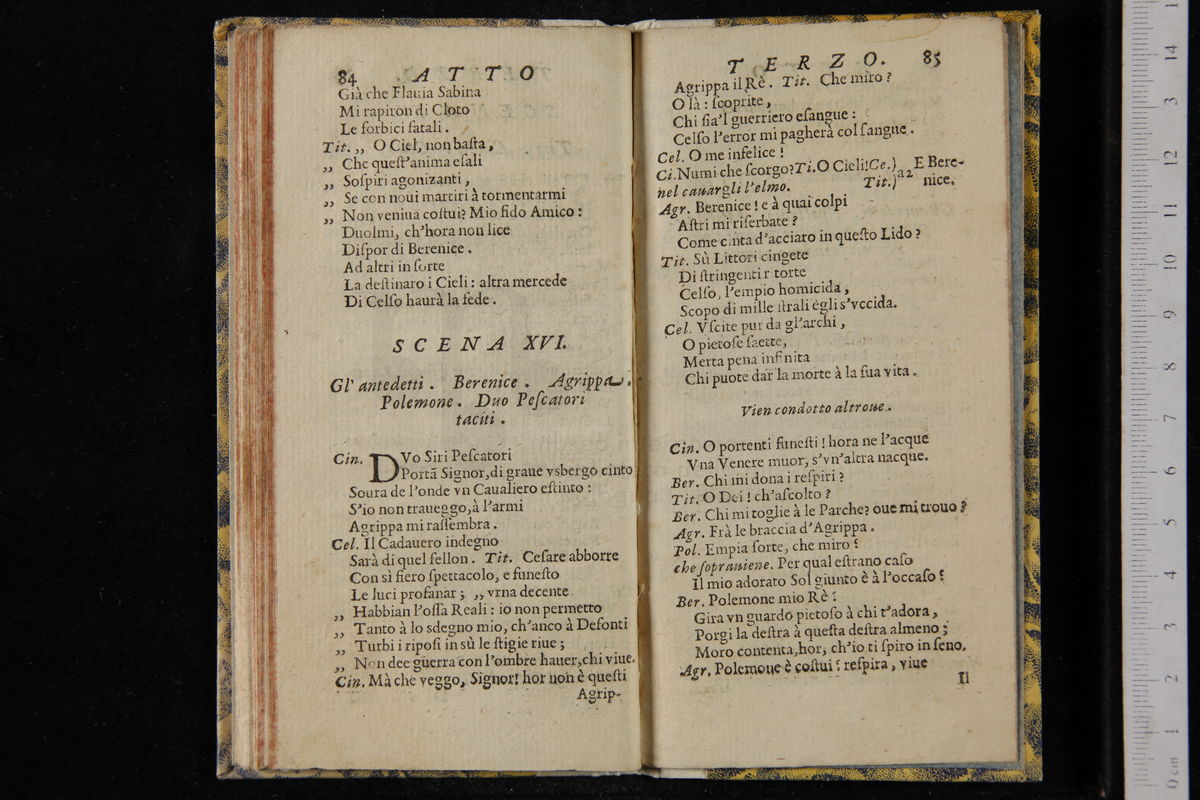 84 . A T T O
Già che Flauia Sabina
Mi rapiron di Cloto
Le forbici fatali .
Tit. ,, O Ciel, non baſta ,
,, Che queſt'anima eſali
,, Soſpiri agonizanti ,
,, Se con noui martiri à tormentarmi
,, Non veniua coſtui? Mio fido Amico :
Duolmi, ch'hora non lice
Diſpor di Berenice .
Ad altri in ſorte
La deſtinaro i Cieli : altra mercede
Di Celſo haurà la fede .
S C E N A XVI.
Gl' antedetti . Berenice . Agrippa .
Polemone . Duo Peſcatori
taciti .
Cin. DVo Siri Peſcatori
Portā Signor, di graue vsbergo cinto
Soura de l'onde vn Caualiero eſtinto :
S'io non traueggo, à l'armi
Agrippa mi raſſembra .
Cel. Il Cadauero indegno
Sarà di quel fellon . Tit. Ceſare abborre
Con sì fiero ſpettacolo, e funeſto
Le luci profanar ; ,, vrna decente
,, Habbian l'oſſa Reali : io non permetto
,, Tanto à lo sdegno mio, ch'anco à Defonti
,, Turbi i ripoſi in sù le ſtigie riue ;
,, Non dee guerra con l'ombre hauer, chi viue.
Cin. Mà che veggo, Signor! hor non è queſti
Agrip-
T E R Z O. 85
Agrippa il Rè . Tit. Che miro ?
O là : ſcoprite ,
Chi ſia'l guerriero eſangue :
Celſo l'error mi pagherà col ſangue .
Cel. O me infelice !
Ci. Numi che ſcorgo? Ti. O Cieli! Ce.) a2 E Bere-
nel cauargli l'elmo. Tit.) nice.
Agr. Berenice ! e à quai colpi
Aſtri mi riſerbate ?
Come cinta d'acciaro in queſto Lido ?
Tit. Sù Littori cingete
Di ſtringenti r torte
Celſo, l'empio homicida ,
Scopo di mille ſtrali egli s'vccida.
Cel. Vſcite pur da gl'archi ,
O pietoſe ſaette,
Merta pena infinita
Chi puote dar la morte à la ſua vita .
Vien condotto altroue .
Cin. O portenti funeſti ! hora ne l'acque
Vna Venere muor, s'vn'altra nacque.
Ber. Chi mi dona i reſpiri ?
Tit. O Dei ! ch'aſcolto ?
Ber. Chi mi toglie à le Parche? oue mi trouo ?
Agr. Frà le braccia d'Agrippa .
Pol. Empia ſorte, che miro ?
che ſoprauiene. Per qual eſtrano caſo
Il mio adorato Sol giunto è à l'occaſo ?
Ber. Polemone mio Rè :
Gira vn guardo pietoſo à chi t'adora ,
Porgi la deſtra à queſta deſtra almeno ;
Moro contenta, hor, ch'io ti ſpiro in ſeno.
Agr. Polemone è coſtui ? reſpira , viue
Il